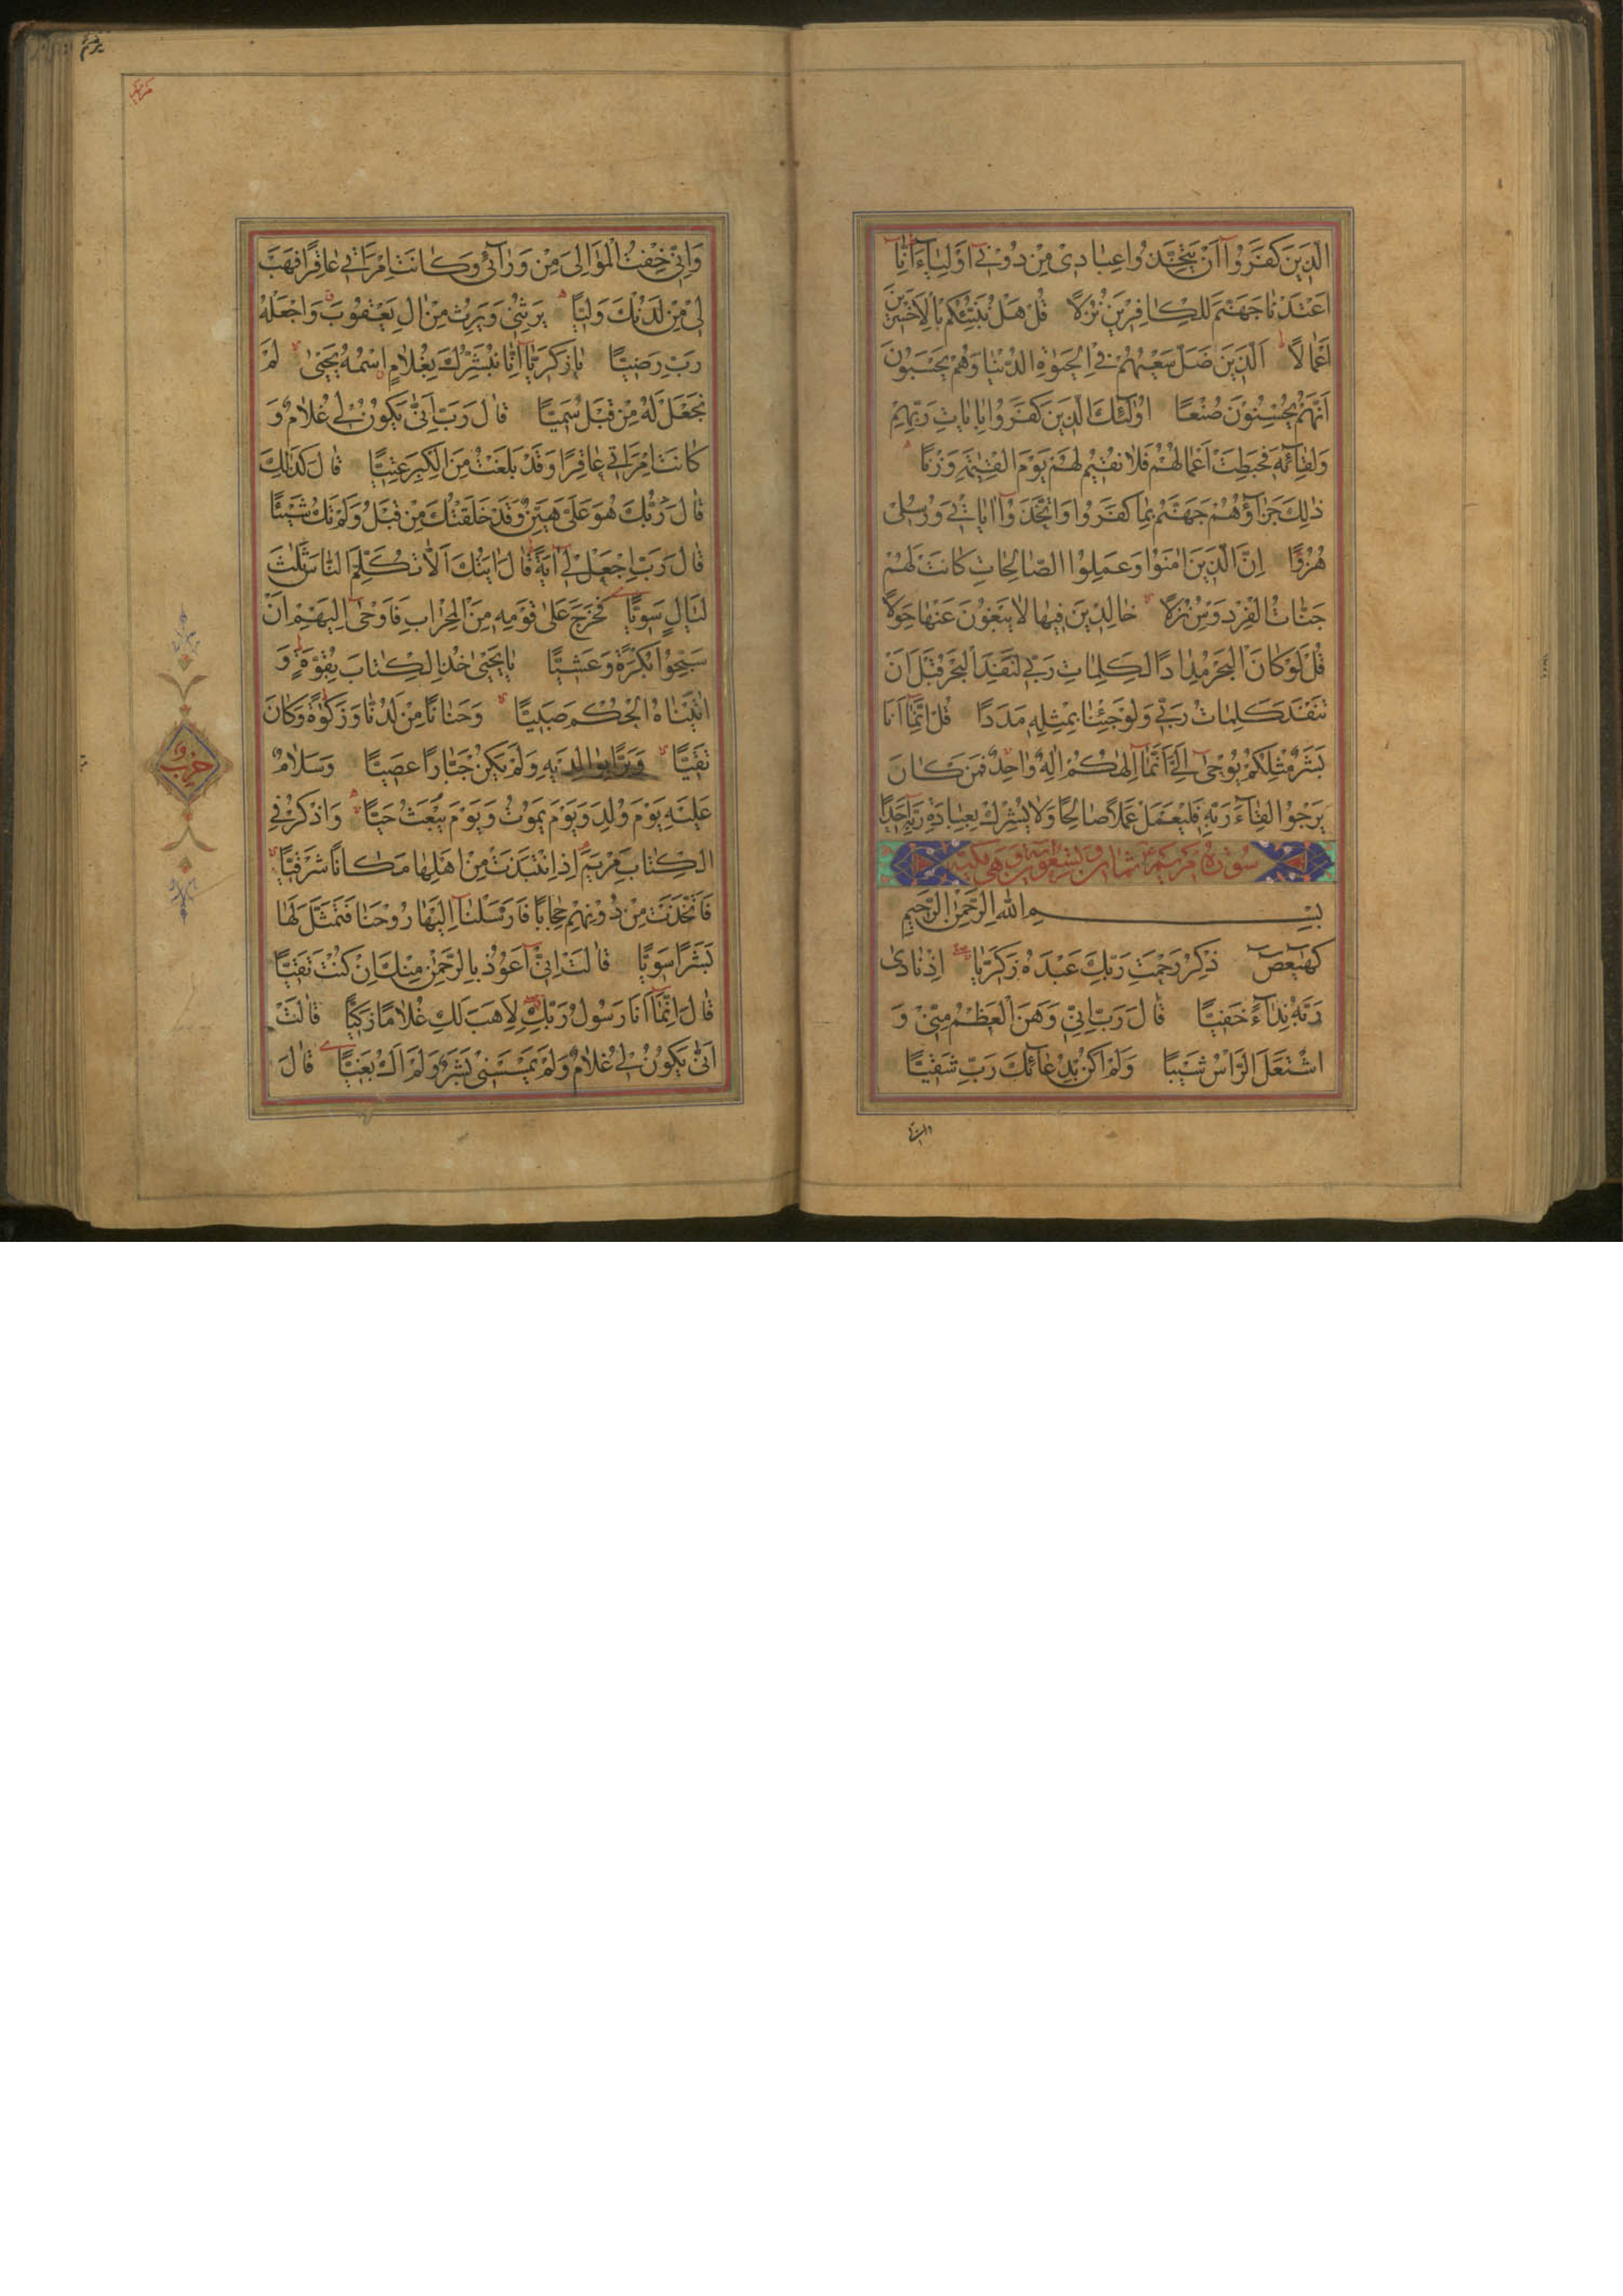 الَّذِينَ كَفَرُوا أَنْ يَتَّخِذُوا عِبَادِى مِنْ دُونِى أَوْلِيَاءَ إِنَّا
أَعْتَدْنَا جَهَنَّمَ لِلْكَافِرِينَ نُزُلًا قُلْ هَلْ نُنَبِّئُكُمْ بِالْأَخْسَرِينَ
أَعْمَالًا اَلَّذِينَ ضَلَّ سَعْيُهُمْ فِى الْحَيٰوةِ الدُّنْيَا وَهُمْ يَحْسَبُونَ
أَنَّهُمْ يُحْسِنُونَ صُنْعًا أُولٰئِكَ الَّذِينَ كَفَرُوا بِايَاتِ رَبِّهِمْ
وَلِقَائِهِ فَحَبِطَتْ أَعْمَالُهُمْ فَلَا نُقِيمُ لَهُمْ يَوْمَ الْقِيٰمَةِ وَزْنًا
ذٰلِكَ جَزَاؤُهُمْ جَهَنَّمُ بِمَا كَفَرُوا وَاتَّخَذُوا ايَاتِى وَرُسُلِى
هُزُوًا إِنَّ الَّذِينَ امَنُوا وَعَمِلُوا الصَّالِحَاتِ كَانَتْ لَهُمْ
جَنَّاتُ الْفِرْدَوْسِ نُزُلًا خَالِدِينَ فِيهَا لَا يَبْغُونَ عَنْهَا حِوَلًا
قُلْ لَوْ كَانَ الْبَحْرُ مِدَادًا لِكَلِمَاتِ رَبِّى لَنَفِدَ الْبَحْرُ قَبْلَ أَنْ
تَنْفَدَ كَلِمَاتُ رَبِّى وَلَوْ جِئْنَا بِمِثْلِهِ مَدَدًا قُلْ إِنَّمَا أَنَا
بَشَرٌ مِثْلُكُمْ يُوحٰى إِلَىَّ أَنَّمَا إِلٰهُكُمْ إِلٰهٌ وَاحِدٌ فَمَنْ كَانَ
يَرْجُوا لِقَاءَ رَبِّهِ فَلْيَعْمَلْ عَمَلًا صَالِحًا وَلَا يُشْرِكْ بِعِبَادَةِ رَبِّهِ أَحَدًا
سُورَةُ مَرْيَمَ ثمان وتسعون آية وهى مكية
بِسْمِ اللهِ الرَّحْمٰنِ الرَّحِيمِ
كهيعص ذِكْرُ رَحْمَتِ رَبِّكَ عَبْدَهُ زَكَرِيَّا إِذْ نَادٰى
رَبَّهُ نِدَاءً خَفِيًّا قَالَ رَبِّ إِنِّى وَهَنَ الْعَظْمُ مِنِّى وَ
اشْتَعَلَ الرَّأْسُ شَيْبًا وَلَمْ أَكُنْ بِدُعَائِكَ رَبِّ شَقِيًّا
وانى
وَإِنِّى خِفْتُ الْمَوَالِىَ مِنْ وَرَائِى وَكَانَتِ امْرَأَتِى عَاقِرًا فَهَبْ
لِى مِنْ لَدُنْكَ وَلِيًّا يَرِثُنِى وَيَرِثُ مِنْ الِ يَعْقُوبَ وَاجْعَلْهُ
رَبِّ رَضِيًّا يَا زَكَرِيَّا إِنَّا نُبَشِّرُكَ بِغُلَامٍ اسْمُهُ يَحْيٰى لَمْ
نَجْعَلْ لَهُ مِنْ قَبْلُ سَمِيًّا قَالَ رَبِّ أَنّٰى يَكُونُ لِى غُلَامٌ وَ
كَانَتِ امْرَأَتِى عَاقِرًا وَقَدْ بَلَغْتُ مِنَ الْكِبَرِ عِتِيًّا قَالَ كَذٰلِكَ
قَالَ رَبُّكَ هُوَ عَلَىَّ هَيِّنٌ وَقَدْ خَلَقْتُكَ مِنْ قَبْلُ وَلَمْ تَكُ شَيْئًا
قَالَ رَبِّ اجْعَلْ لِى ايَةً قَالَ ايَتُكَ أَلَّا تُكَلِّمَ النَّاسَ ثَلٰثَ
لَيَالٍ سَوِيًّا فَخَرَجَ عَلٰى قَوْمِهِ مِنَ الْمِحْرَابِ فَأَوْحٰى إِلَيْهِمْ أَنْ
سَبِّحُوا بُكْرَةً وَعَشِيًّا يَا يَحْيٰى خُذِ الْكِتَابَ بِقُوَّةٍ وَ
اتَيْنَاهُ الْحُكْمَ صَبِيًّا وَحَنَانًا مِنْ لَدُنَّا وَزَكٰوةً وَكَانَ
تَقِيًّا وَبَرًّا بِوَالِدَيْهِ وَلَمْ يَكُنْ جَبَّارًا عَصِيًّا وَسَلَامٌ
عَلَيْهِ يَوْمَ وُلِدَ وَيَوْمَ يَمُوتُ وَيَوْمَ يُبْعَثُ حَيًّا وَاذْكُرْ فِى
الْكِتَابِ مَرْيَمَ إِذِ انْتَبَذَتْ مِنْ أَهْلِهَا مَكَانًا شَرْقِيًّا
فَاتَّخَذَتْ مِنْ دُونِهِمْ حِجَابًا فَأَرْسَلْنَا إِلَيْهَا رُوحَنَا فَتَمَثَّلَ لَهَا
بَشَرًا سَوِيًّا قَالَتْ إِنِّى أَعُوذُ بِالرَّحْمٰنِ مِنْكَ إِنْ كُنْتَ تَقِيًّا
قَالَ إِنَّمَا أَنَا رَسُولُ رَبِّكِ لِأَهَبَ لَكِ غُلَامًا زَكِيًّا قَالَتْ
أَنّٰى يَكُونُ لِى غُلَامٌ وَلَمْ يَمْسَسْنِى بَشَرٌ وَلَمْ أَكُ بَغِيًّا قَالَ
حزب